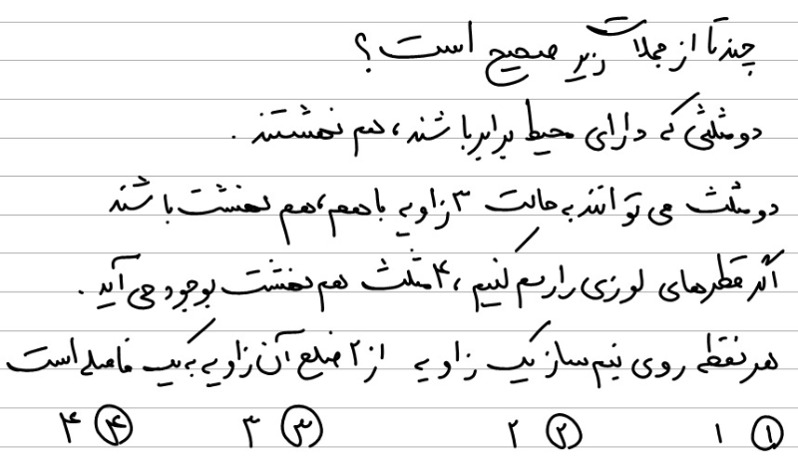 چندتا از جملات زیر صحیح است؟
دو مثلثی که دارای محیط برابر باشند، هم نهشتند.
دو مثلث می توانند به حالت ۳ زاویه با هم، هم نهشت باشند
اگر قطرهای لوزی را رسم کنیم، ۴ مثلث هم نهشت بوجود می آید.
هر نقطه روی نیم ساز یک زاویه از ۲ ضلع آن زاویه به یک فاصله است
۱) ۱ ۲) ۲ ۳) ۳ ۴) ۴